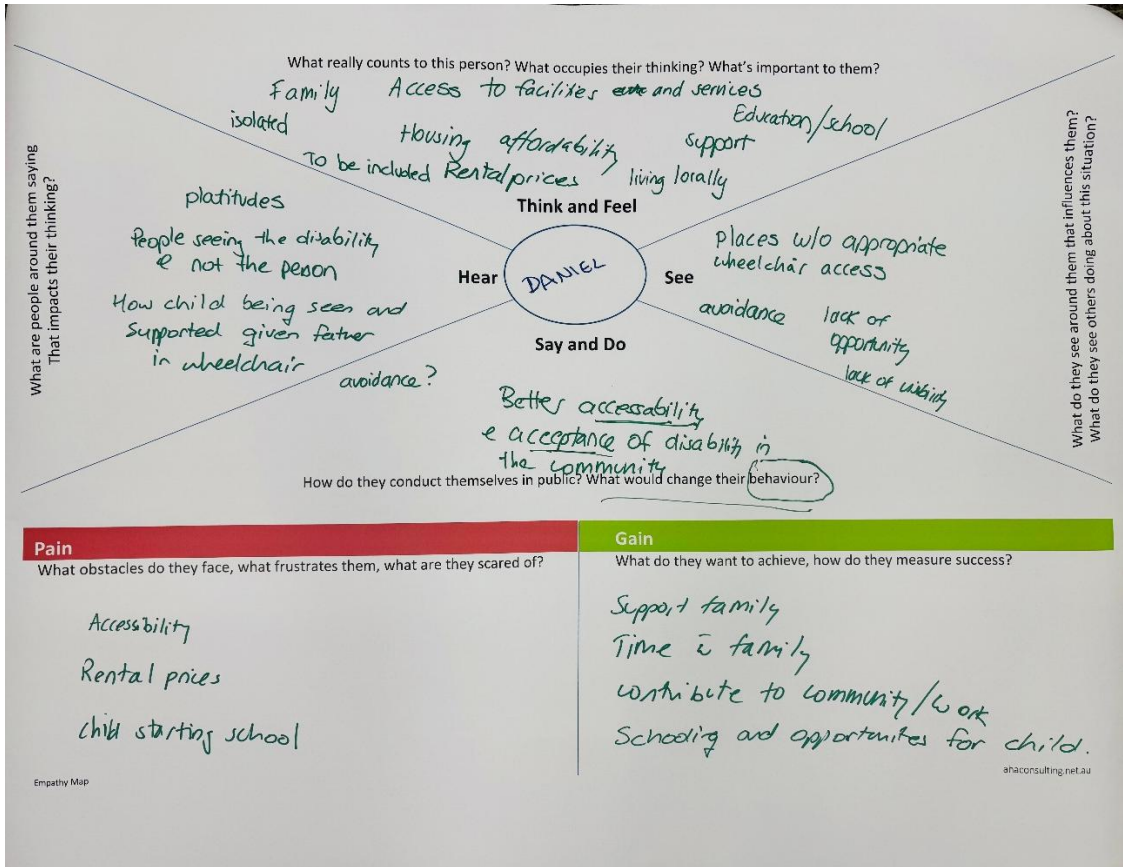 What really counts to this person? What occupies their thinking? What's important to them?
Family Access to facilites and services
isolated Education/school
Housing affordability support
To be included Rental prices living locally
Think and Feel
What are people around them saying
That impacts their thinking?
platitudes
People seeing the disability
e not the person
How child being seen and
supported given father
in wheelchair
avoidance?
Hear
DANIEL
See
Places w/o appropriate
wheelchair access
avoidance lack of
opportunity
lack of
What do they see around them that influences them?
What do they see others doing about this situation?
Say and Do
Better accessability
e acceptance of disability in
the community
How do they conduct themselves in public? What would change their behaviour?
Pain
What obstacles do they face, what frustrates them, what are they scared of?
Accessibility
Rental prices
Child starting school
Gain
What do they want to achieve, how do they measure success?
Support family
Time c̄ family
contribute to community/work
Schooling and opportunites for child.
Empathy Map
ahaconsulting.net.au